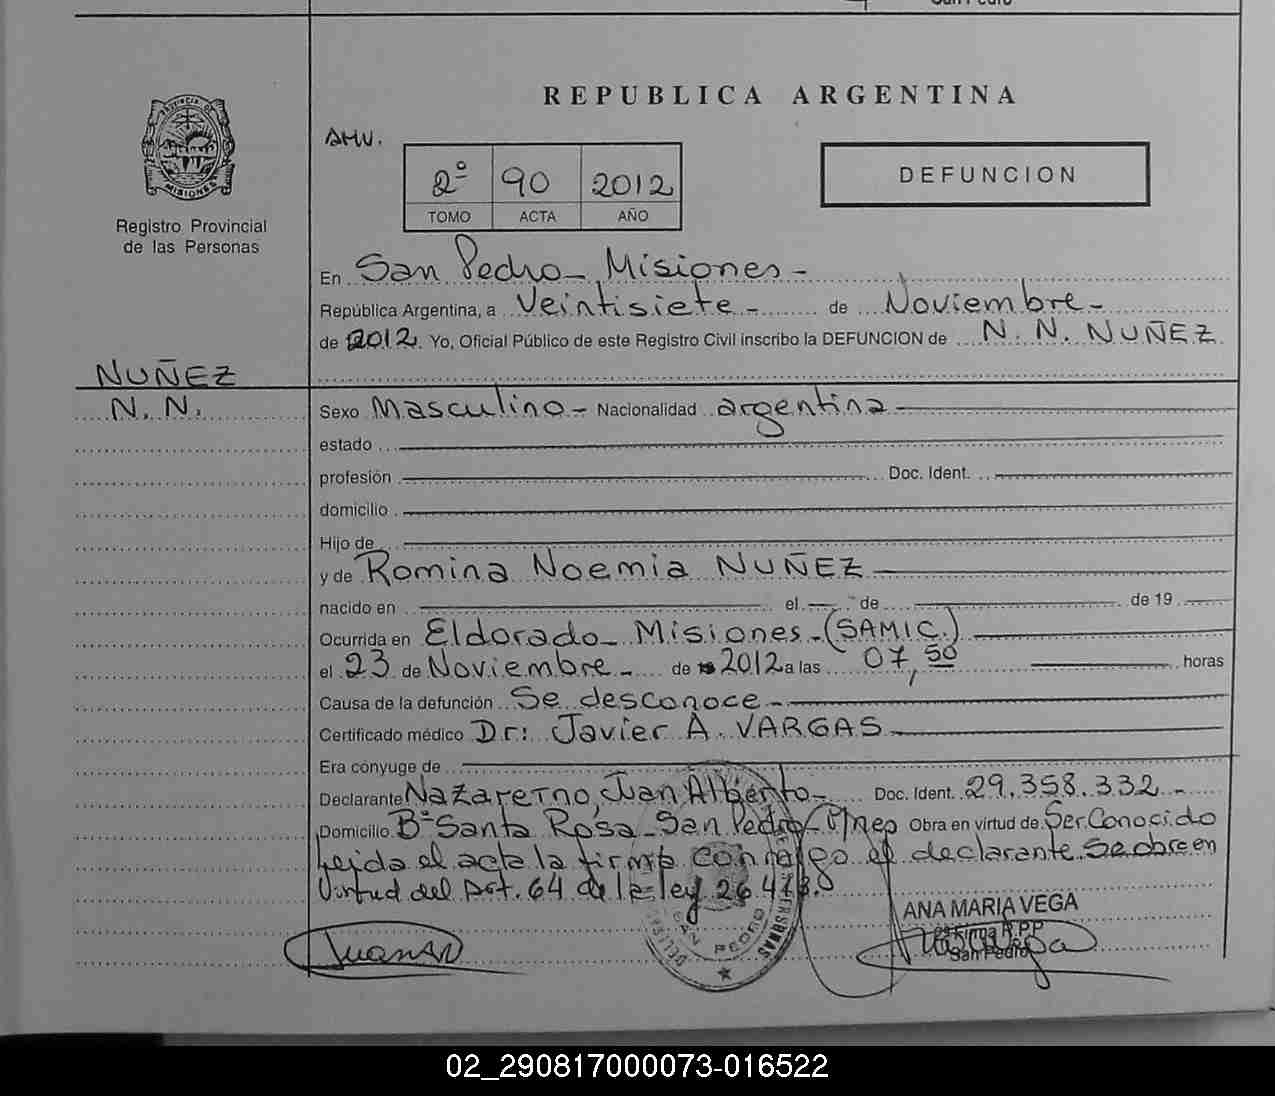 San Pedro
REPUBLICA ARGENTINA
AMV.
PROVINCIA DE MISIONES
Registro Provincial
de las Personas
2º 90 2012
TOMO ACTA AÑO
DEFUNCION
En San Pedro - Misiones -
República Argentina, a Veintisiete - de Noviembre -
de 2012. Yo, Oficial Público de este Registro Civil inscribo la DEFUNCION de N. N. NUÑEZ
NUÑEZ
N. N.
Sexo Masculino - Nacionalidad argentina
estado
profesión Doc. Ident.
domicilio
Hijo de
y de Romina Noemia NUÑEZ
nacido en el de de 19
Ocurrida en Eldorado - Misiones - (SAMIC.)
el 23 de Noviembre - de 2012 a las 07,50 horas
Causa de la defunción Se desconoce -
Certificado médico Dr: Javier A. VARGAS
Era cónyuge de
Declarante Nazareno, Juan Alberto - Doc. Ident. 29.358.332 -
Domicilio Bº Santa Rosa - San Pedro - Mnes Obra en virtud de Ser Conocido
Leída el acta la firma conmigo el declarante. Se obra en
Virtud del Art. 64 de la ley 26.413.
ANA MARIA VEGA
Firma R.P.P
San Pedro
SAN PEDRO
02_290817000073-016522